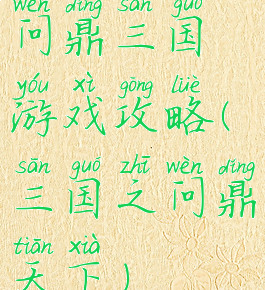 wèn dǐng sān guó
问鼎三国
yóu xì gōng lüè
游戏攻略(
sān guó zhī wèn dǐng
三国之问鼎
tiān xià
天下)